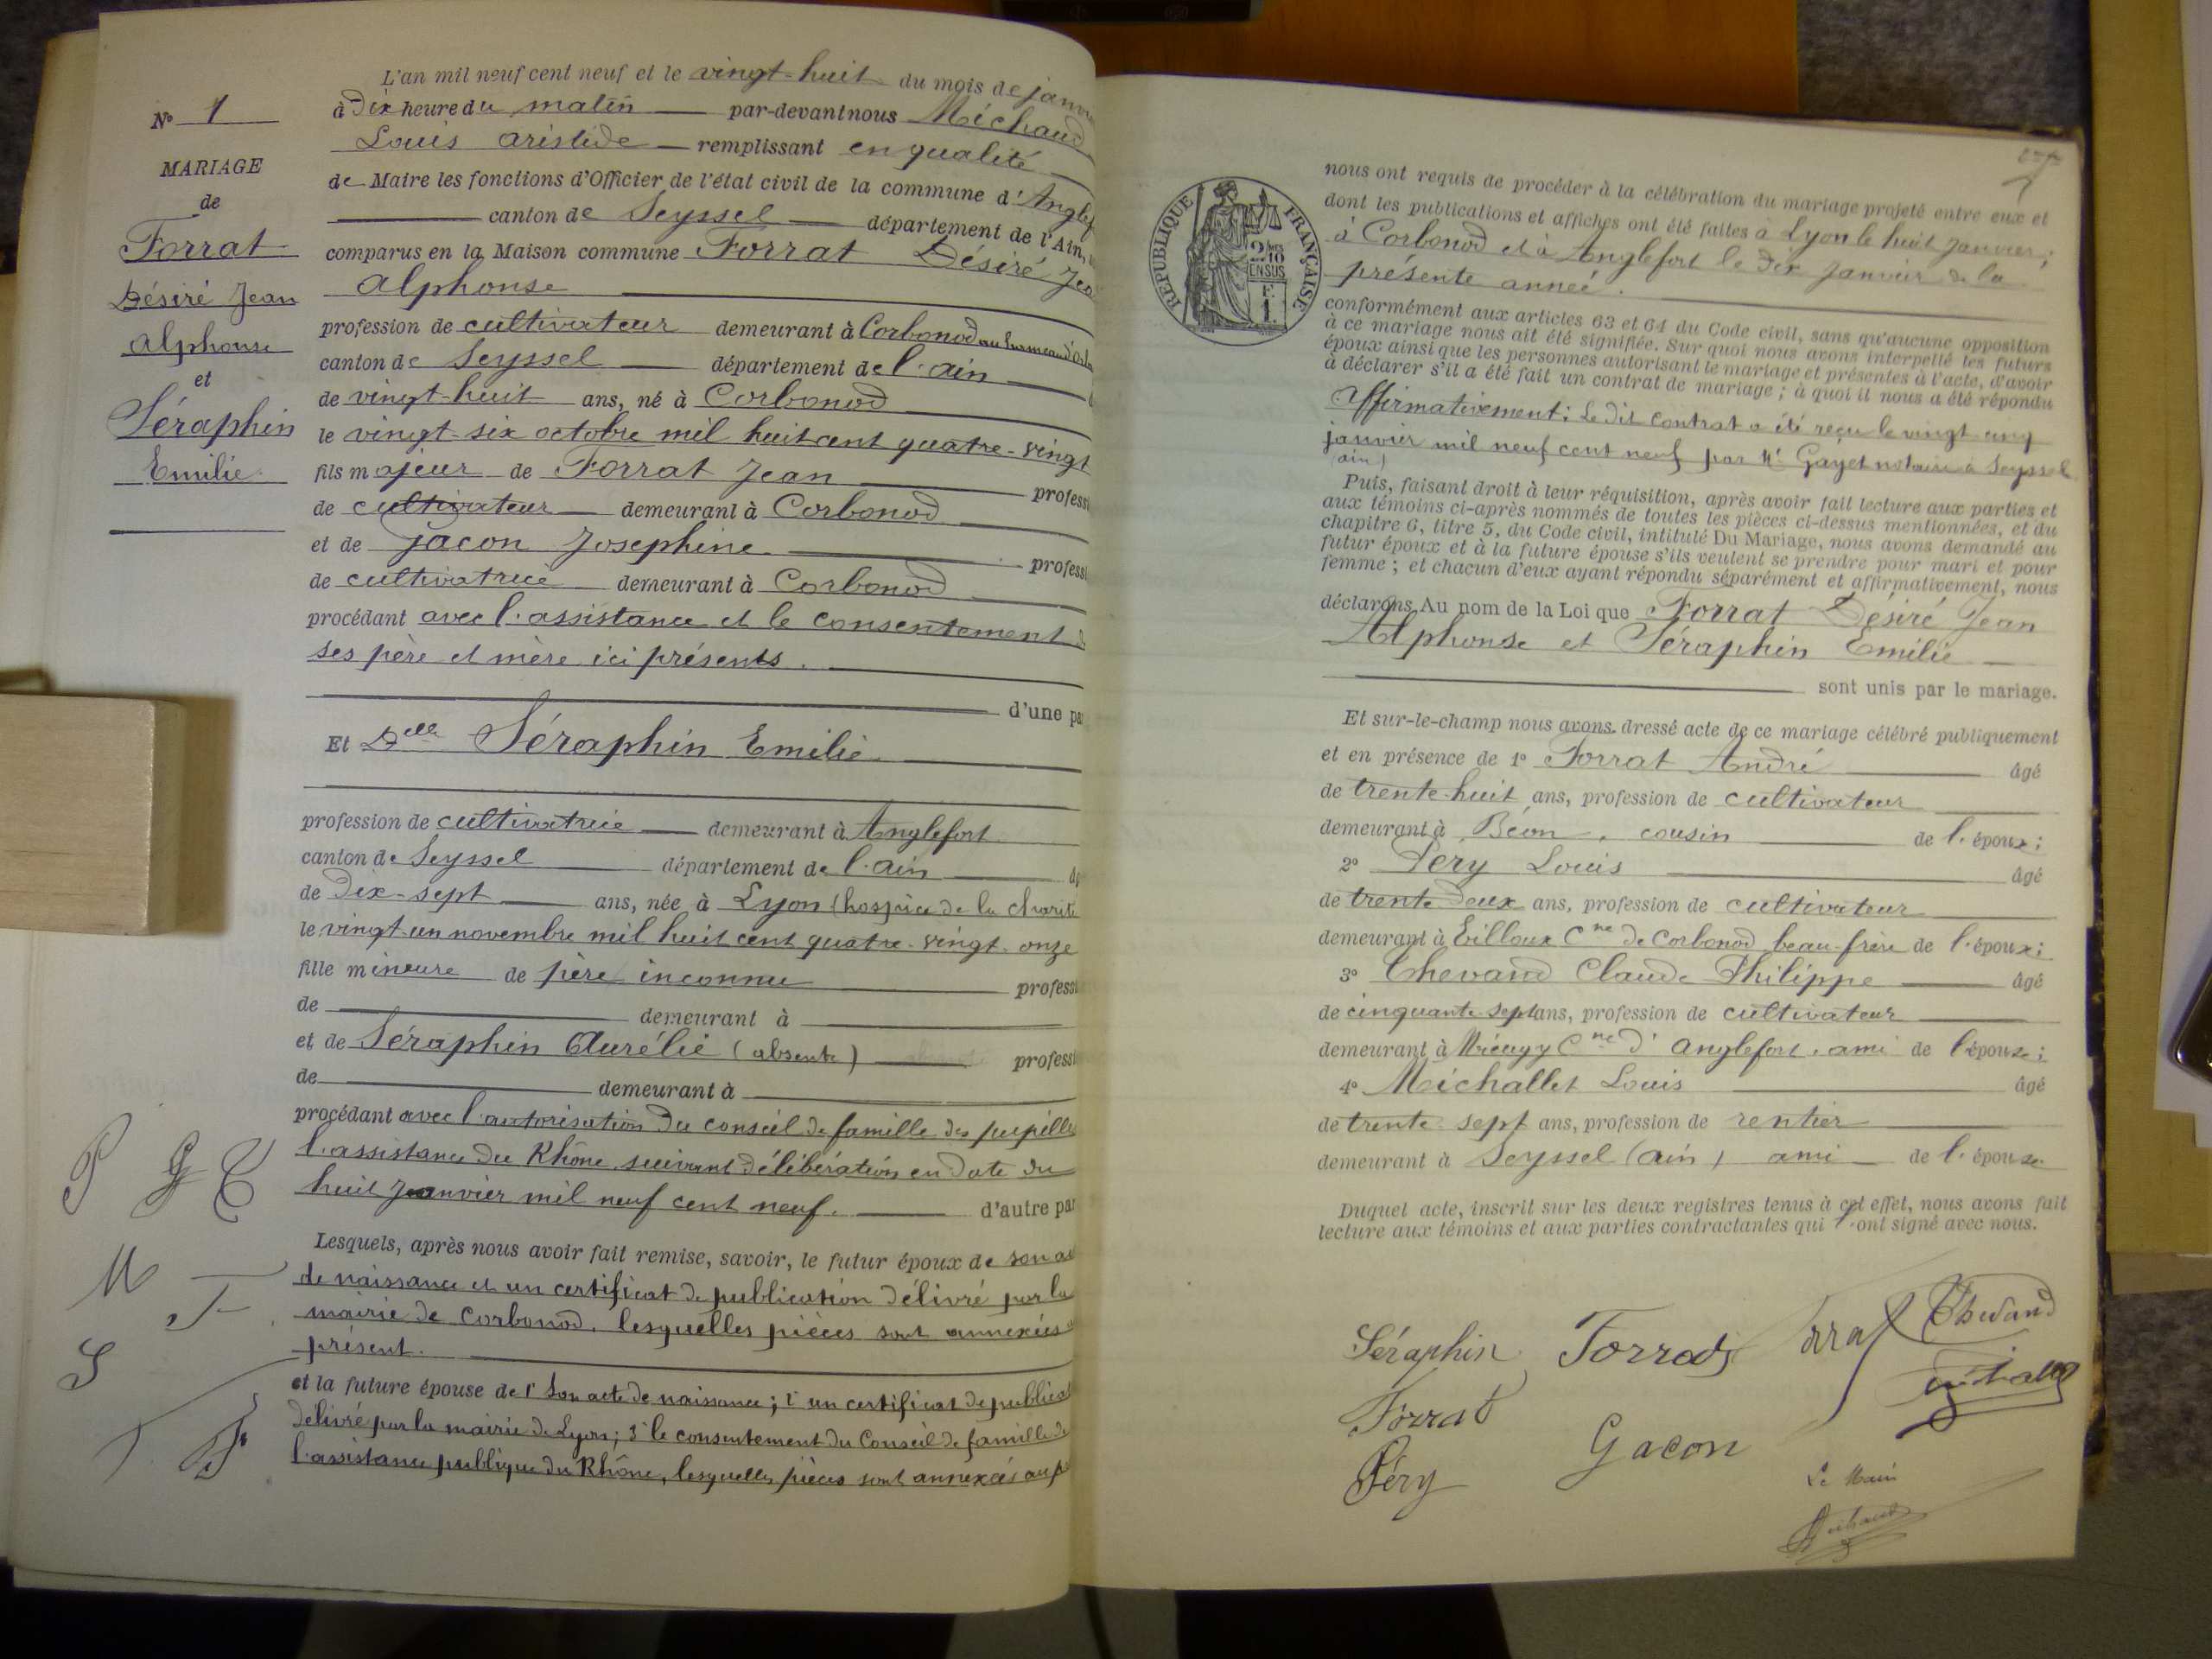 N° 1
MARIAGE
de
Forrat
Désiré Jean
Alphonse
et
Séraphin
Emilie
L'an mil neuf cent neuf et le vingt-huit du mois de janvi
à Dix heure du matin par-devant nous Michaud
Louis Aristide remplissant en qualité
de Maire les fonctions d'Officier de l'état civil de la commune d'Anglef
canton de Seyssel département de l'Ain,
comparus en la Maison commune Forrat Désiré Jea
Alphonse
profession de cultivateur demeurant à Corbonod au hameau d'
canton de Seyssel département de l'ain
de vingt-huit ans, né à Corbonod
le vingt-six octobre mil huit cent quatre-vingt
fils majeur de Forrat Jean professi
de cultivateur demeurant à Corbonod
et de Gacon Josephine professi
de cultivatrice demeurant à Corbonod
procédant avec l'assistance et le consentement de
ses père et mère ici présents.
d'une pa
Et Delle Séraphin Emilie
profession de cultivatrice demeurant à Anglefort
canton de Seyssel département de l'ain
de Dix-sept ans, née à Lyon (hospice de la charité
le vingt-un novembre mil huit cent quatre-vingt-onze
fille mineure de père inconnu professi
de demeurant à
et de Séraphin Aurélie (absente) professi
de demeurant à
procédant avec l'autorisation du conseil de famille des pupilles
l'assistance du Rhône suivant délibération en date du
huit janvier mil neuf cent neuf. d'autre par
Lesquels, après nous avoir fait remise, savoir, le futur époux de son ac
de naissance et un certificat de publication délivré par la
mairie de Corbonod, lesquelles pièces sont annexées a
présent.
et la future épouse de 1° Son acte de naissance; 2° un certificat de publicat
délivré par la mairie de Lyon; 3° le consentement du Conseil de famille de
l'assistance publique du Rhône, lesquelles pièces sont annexées au p
P G C
M F
S
F
RÉPUBLIQUE FRANÇAISE
2/10
EN SUS
nous ont requis de procéder à la célébration du mariage projeté entre eux et
dont les publications et affiches ont été faites à Lyon le huit janvier;
à Corbonod et à Anglefort le dix janvier de la
présente année.
conformément aux articles 63 et 64 du Code civil, sans qu'aucune opposition
à ce mariage nous ait été signifiée. Sur quoi nous avons interpellé les futurs
époux ainsi que les personnes autorisant le mariage et présentes à l'acte, d'avoir
à déclarer s'il a été fait un contrat de mariage; à quoi il nous a été répondu
Affirmativement; Le dit contrat a été reçu le vingt cinq
janvier mil neuf cent neuf par Me Gayet notaire à Seyssel
(ain)
Puis, faisant droit à leur réquisition, après avoir fait lecture aux parties et
aux témoins ci-après nommés de toutes les pièces ci-dessus mentionnées, et du
chapitre 6, titre 5, du Code civil, intitulé Du Mariage, nous avons demandé au
futur époux et à la future épouse s'ils veulent se prendre pour mari et pour
femme; et chacun d'eux ayant répondu séparément et affirmativement, nous
déclarons Au nom de la Loi que Forrat Désiré Jean
Alphonse et Séraphin Emilie
sont unis par le mariage.
Et sur-le-champ nous avons dressé acte de ce mariage célébré publiquement
et en présence de 1° Forrat André âgé
de trente-huit ans, profession de cultivateur
demeurant à Béon, cousin de l'époux;
2° Péry Louis âgé
de trente deux ans, profession de cultivateur
demeurant à Eilloux Cne de Corbonod beau-frère de l'époux;
3° Thevand Claude Philippe âgé
de cinquante-sept ans, profession de cultivateur
demeurant à Mieugy Cne d'Anglefort, ami de l'épouse;
4° Michallet Louis âgé
de trente-sept ans, profession de rentier
demeurant à Seyssel (ain) ami de l'épouse.
Duquel acte, inscrit sur les deux registres tenus à cet effet, nous avons fait
lecture aux témoins et aux parties contractantes qui l'ont signé avec nous.
Séraphin Forrat Forrat Thevand
Forrat Gacon Michallet
Péry
Le Maire
Michaud